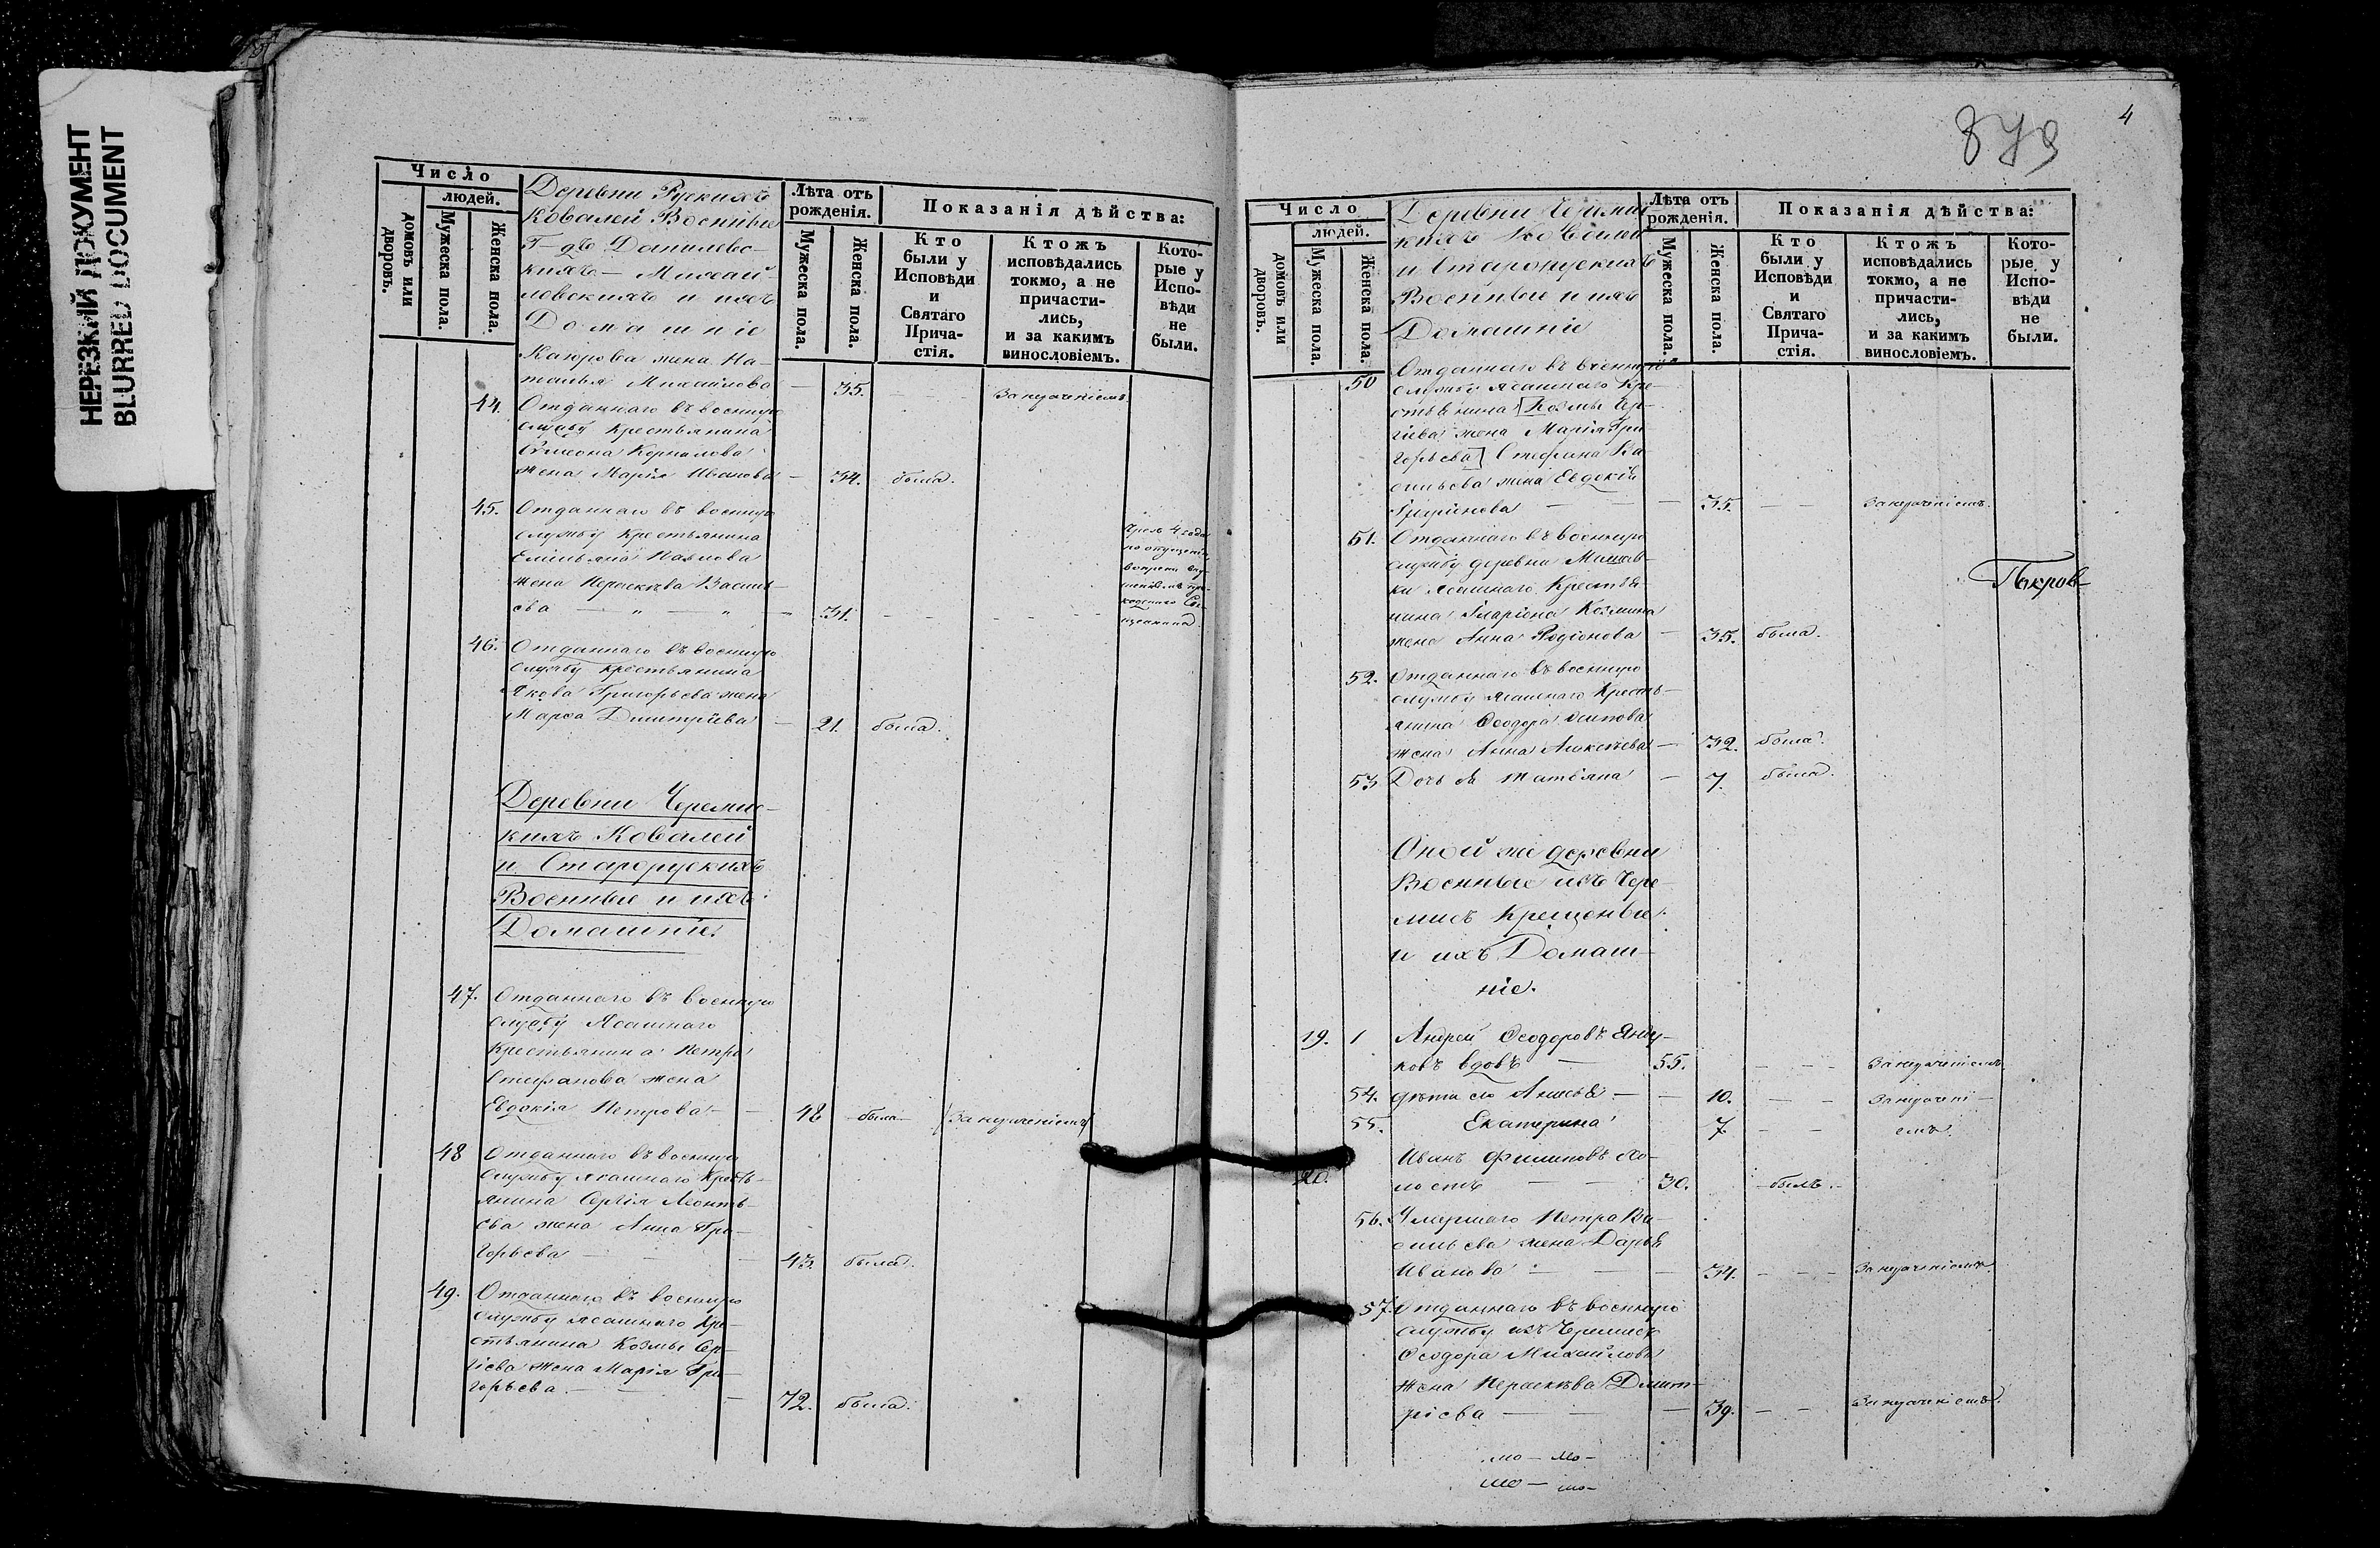 НЕРЕЗКИЙ ДОКУМЕНТ
BLURRED DOCUMENT
Число
людей.
домовъ или дворовъ.
Мужеска пола.
Женска пола.
Деревни Руских
Ковалей Военные
Г-дъ Данилевс-
кихъ - Михай-
ловскихъ и ихъ
Домашніе
Лѣта отъ рожденія.
Мужеска пола.
Женска пола.
Показанія дѣйства:
Кто были у Исповѣди и Святаго Прича-стія.
Ктожъ исповѣдались токмо, а не причасти-лись, и за какимъ винословіемъ.
Кото-рые у Испо-вѣди не были.
жена На-
талья Михайлова — 35. — За нерачніемъ.
44. Отданнаго въ военную
службу крестьянина
Симеона Корнилова
жена Марія Иванова — 34. была.
45. Отданнаго въ военную
службу крестьянина
Емельяна Павлова
жена Параскева Василь-
ева — " — " — 31. — —
46. Отданнаго въ военную
службу крестьянина
Якова Григорьева жена
Марѳа Дмитріева — 21. была.
Деревни Черемис-
кихъ Ковалей
и Старорускихъ
Военные и ихъ
Домашніе.
47. Отданнаго въ военную
службу Ясашнаго
Крестьянина Петра
Стефанова жена
Евдокія Петрова — 48 была (За нераченіемъ)
48 Отданнаго въ военную
службу ясашнаго Кресть-
янина Сергія Леонть-
ева жена Анна Гри-
горьева — 43. была.
49. Отданнаго въ военную
службу ясашнаго Кре-
стьянина Козмы Сер-
гіева жена Марія Гри-
горьева. — 72. была.
879
4
Число
людей.
домовъ или дворовъ.
Мужеска пола.
Женска пола.
Деревни Черемис-
кихъ Ковалей
и Старорускихъ
Военные и ихъ
Домашніе
Лѣта отъ рожденія.
Мужеска пола.
Женска пола.
Показанія дѣйства:
Кто были у Исповѣди и Святаго Прича-стія.
Ктожъ исповѣдались токмо, а не причасти-лись, и за какимъ винословіемъ.
Кото-рые у Испо-вѣди не были.
50 Отданнаго въ военную
службу ясашнаго Кре-
стьянина [Козмы Сер-
гіева жена Марія Гри-
горьева] Стефана Ва-
сильева жена Евдокія
— 35. — — За нераченіемъ.
51. Отданнаго въ военную
службу деревни
ки ясашнаго Крестья-
нина Иларіона Козмина
жена Анна Родіонова — 35. была.
Покров-
52. Отданнаго въ военную
службу ясашнаго Кресть-
янина Ѳеодора Осипова
жена Анна Алексѣева — 32. была.
53 Дочь ея Татьяна — 7. была.
Оной же деревни
Военные изъ Чере-
мисъ Крещеные
и ихъ Домаш-
ніе.
19. 1 Андрей Ѳеодоровъ
ковъ вдовъ — 55. — — За нераченіемъ
54. дѣти его — — 10. — — За нерачені-
55. Екатерина 7. — — емъ.
20. Иванъ Филиповъ хо-
лостъ — — 30. — былъ. —
56. Умершаго Петра Ва-
сильева жена Дарья
Иванова — — 34. — — За нераченіемъ.
57. Отданнаго въ военную
службу изъ Черемисъ
Ѳеодора Михайлова
жена Параскева Дмит-
ріева — — 39. — — За нераченіемъ.